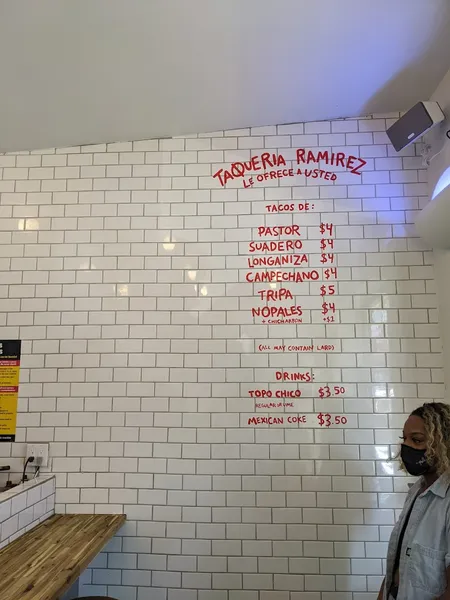 TAQUERIA RAMIREZ
LE OFRECE A USTED
TACOS DE:
PASTOR $4
SUADERO $4
LONGANIZA $4
CAMPECHANO $4
TRIPA $5
NOPALES $4
+ CHICHARRON +$1
(ALL MAY CONTAIN LARD)
DRINKS:
TOPO CHICO $3.50
REGULAR
MEXICAN COKE $3.50